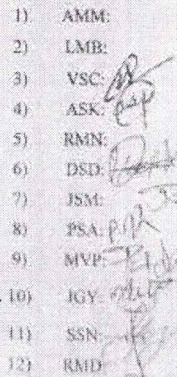 1) AMM:
2) LMB:
3) VSC:
4) ASK:
5) RMN:
6) DSD:
7) JSM:
8) PSA:
9) MVP:
10) JGY:
11) SSN:
12) RMD